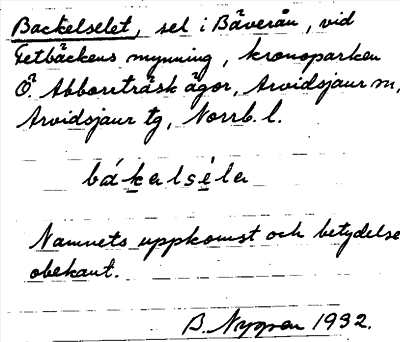 Backelselet, sel i Bäverån, vid
Fetbäckens mynning, kronoparken
Ö. Abborrträsk ägor, Arvidsjaur sn,
Arvidsjaur tg, Norrb. l.
bákalséla
Namnets uppkomst och betydelse
obekant.
B. Nygren 1932.